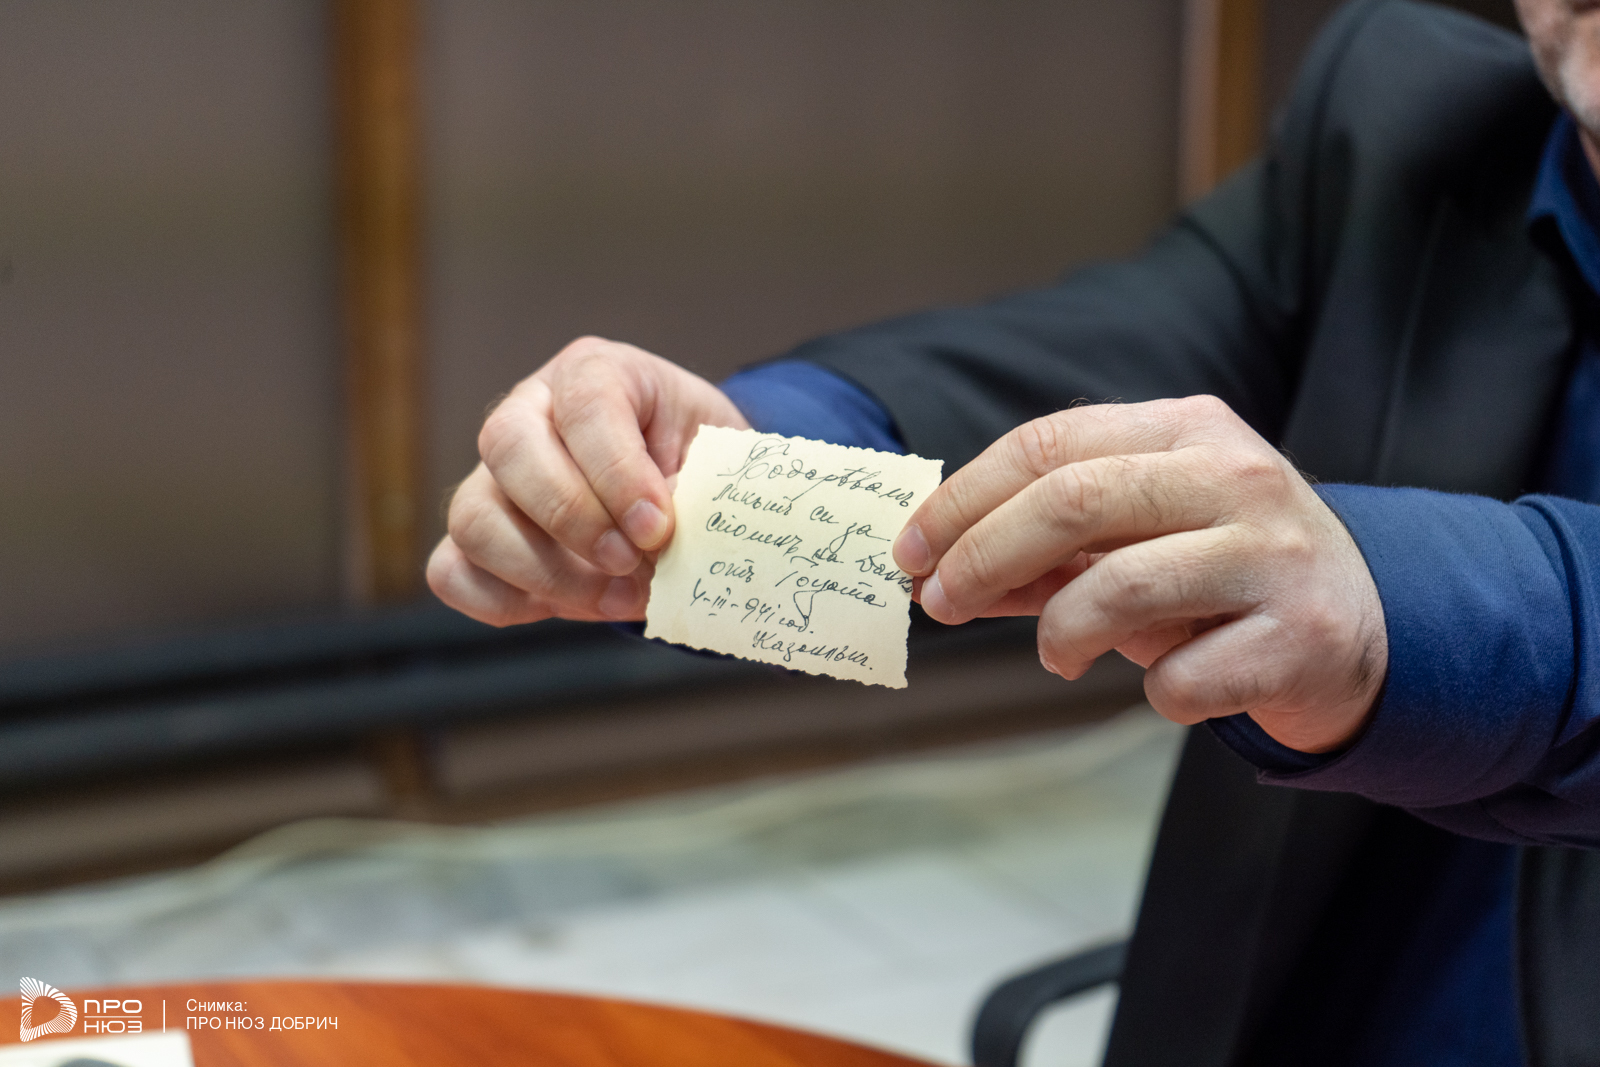 Подарѣвамъ
ликътъ си за
споменъ на Данк
отъ Гошата
4-III-941 год.
Казанлък.
ПРО
НЮЗ
Снимка:
ПРО НЮЗ ДОБРИЧ